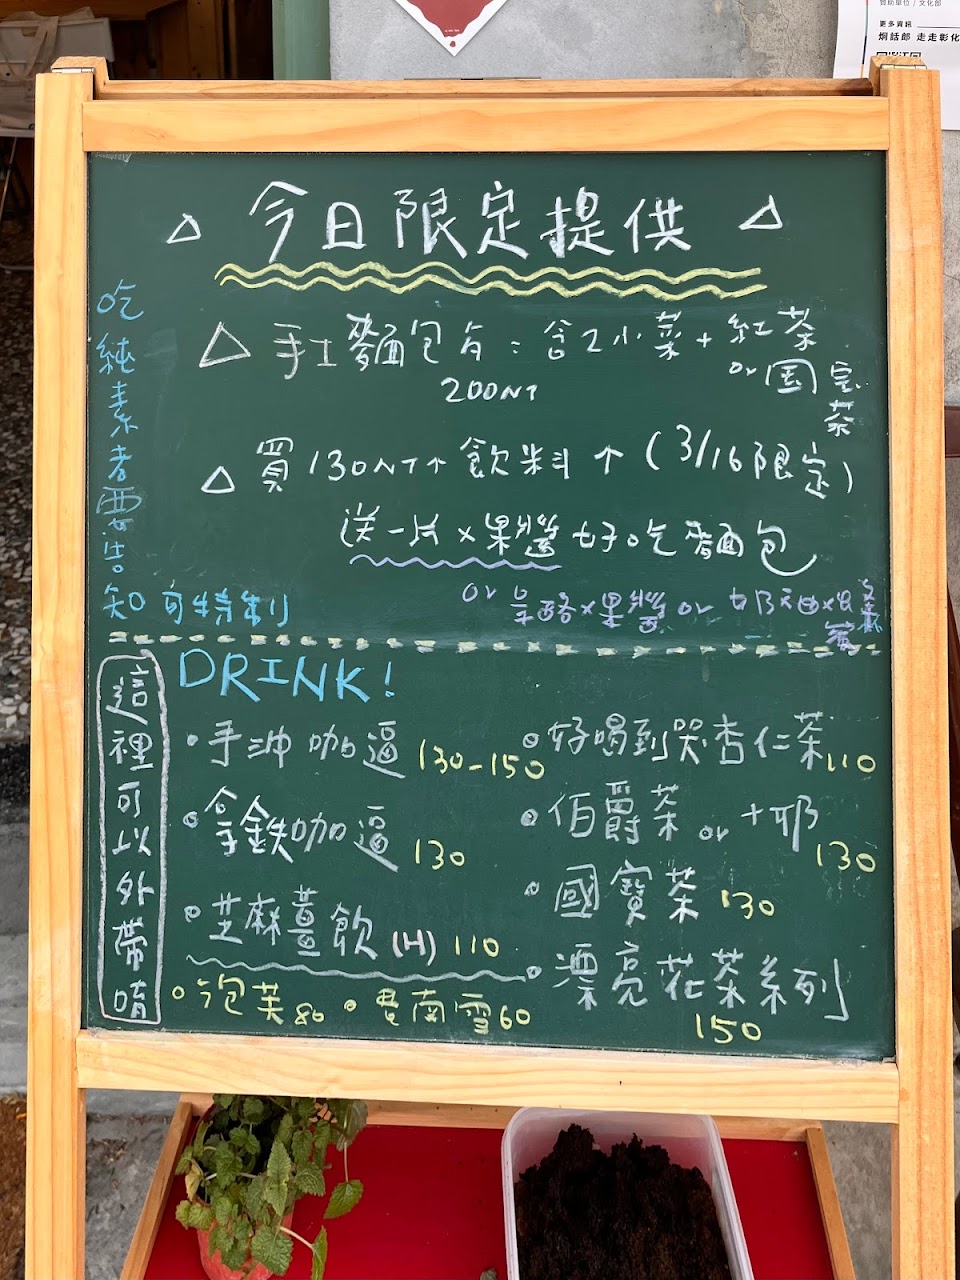 贊助單位 / 文化部
更多資訊
炯話郎 走走彰化
△ 今日限定提供 △
吃純素者要告知 可特制
△ 手工麥面包旨：含2小菜+紅茶
or 国宝茶
200NT
△ 買130NT↑飲料↑(3/16限定)
送一片×果醬好吃麵包
or 乳酪×果醬 or
DRINK!
這裡可以外帶唷
• 手沖咖逼 130-150
• 拿鉄咖逼 130
• 芝麻薑飲(H) 110
• 泡芙80 • 費南雪60
• 好喝到哭杏仁茶110
• 伯爵茶 or +耶 130
• 國寶茶 130
• 漂亮花茶系列 150